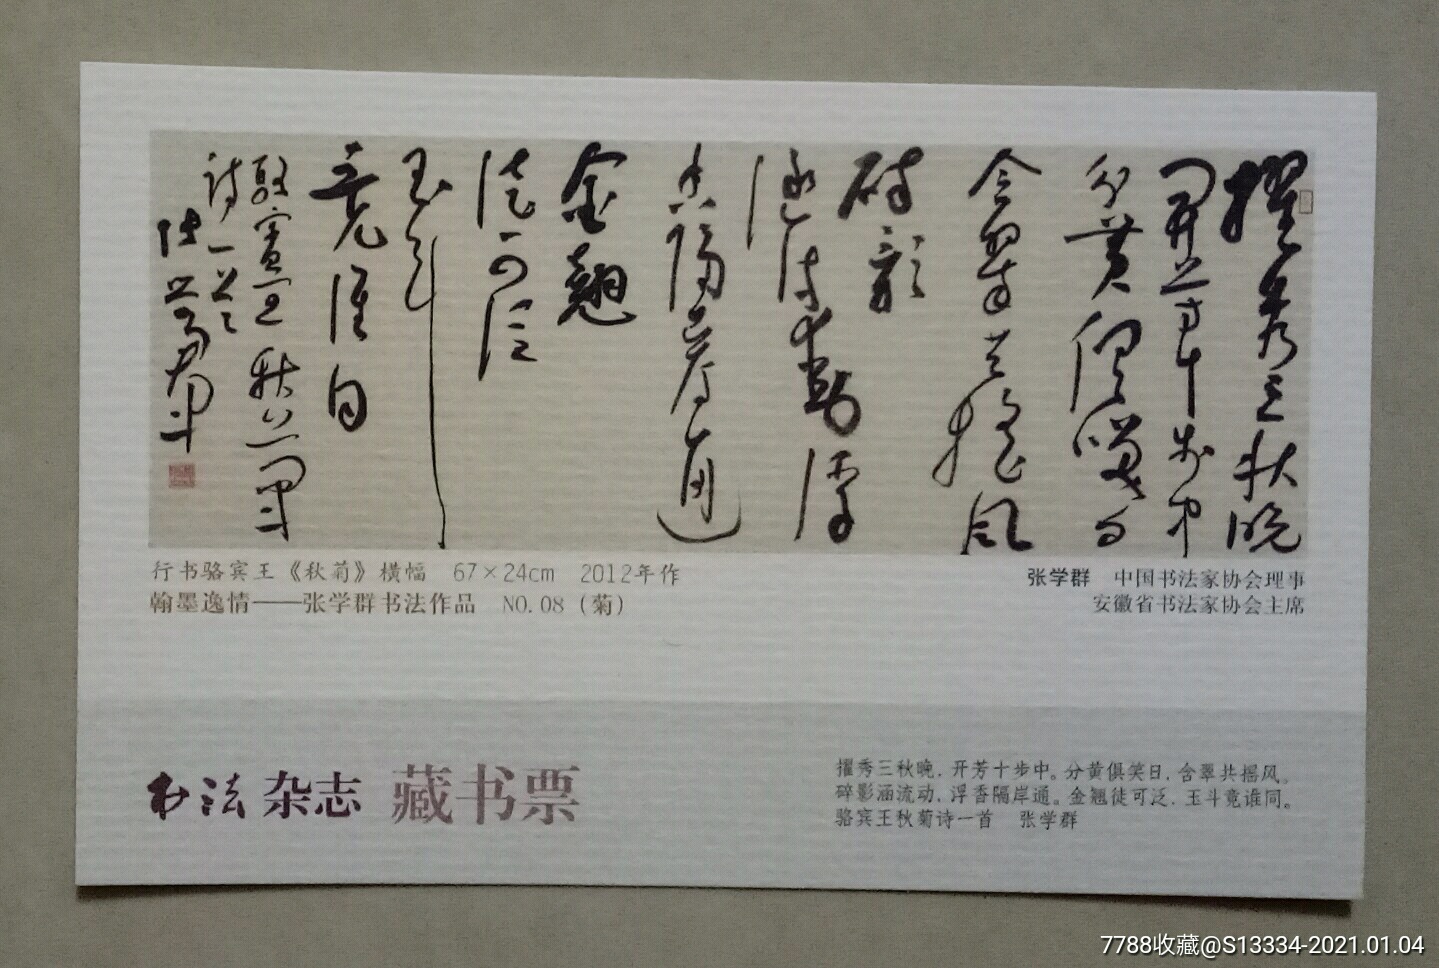 擢秀三秋晚
开芳十步中
分黄俱笑日
含翠共摇风
碎影
涵流动浮
香隔岸通
金翘
徒可泛
玉斗
竟谁同
骆宾王秋菊
诗一首
张学群
行书骆宾王《秋菊》横幅 67×24cm 2012年作
翰墨逸情——张学群书法作品 NO.08（菊）
张学群 中国书法家协会理事
安徽省书法家协会主席
书法 杂志 藏书票
擢秀三秋晚，开芳十步中。分黄俱笑日，含翠共摇风。
碎影涵流动，浮香隔岸通。金翘徒可泛，玉斗竟谁同。
骆宾王秋菊诗一首 张学群
7788收藏@S13334-2021.01.04